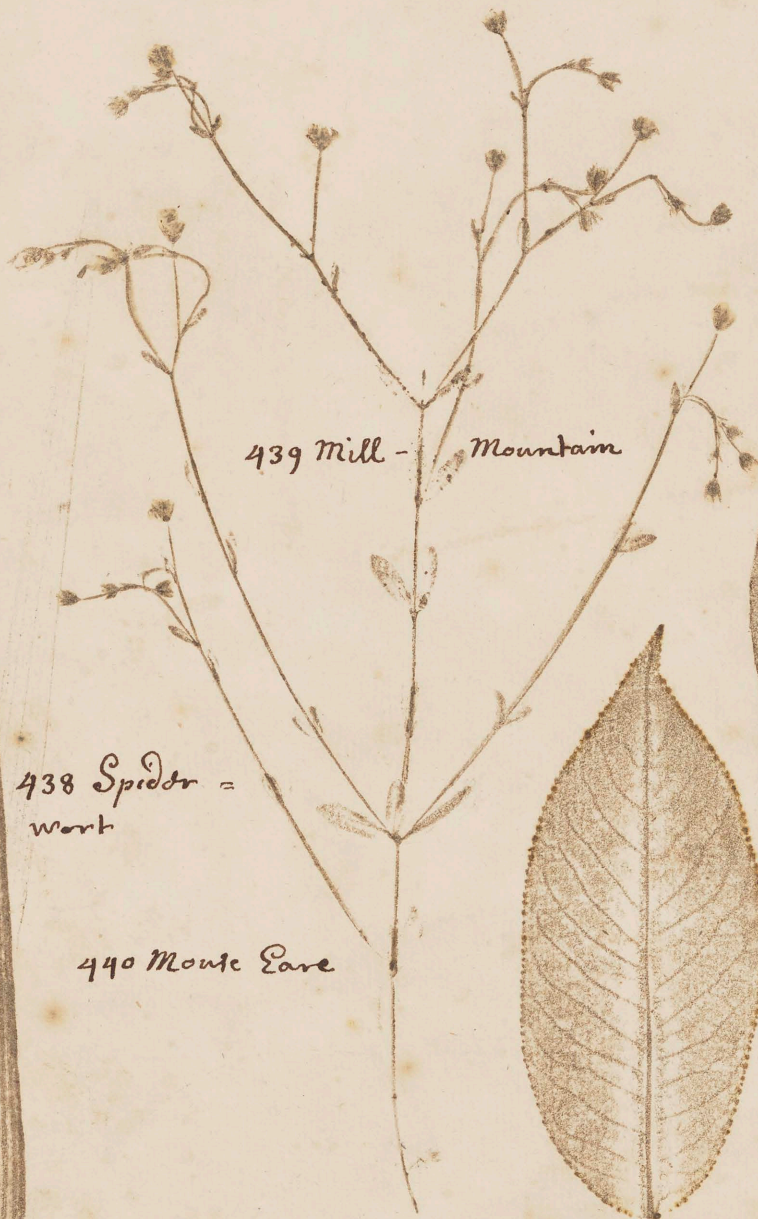 439 Mill - Mountain
438 Spider =
wort
440 Mouse Eare